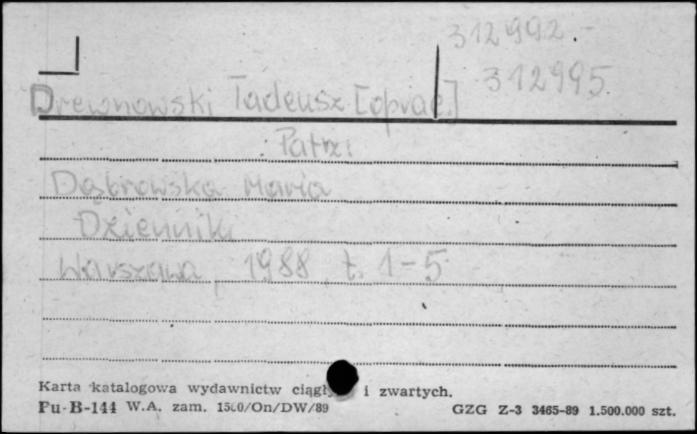 312992.-
312995
Drewnowski Tadeusz [oprac.]
Patrz:
Dąbrowska Maria
Dzienniki
Warszawa, 1988, t. 1-5
Karta katalogowa wydawnictw ciągły i zwartych.
Pu-B-144 W.A. zam. 1500/On/DW/89 GZG Z-3 3465-89 1.500.000 szt.